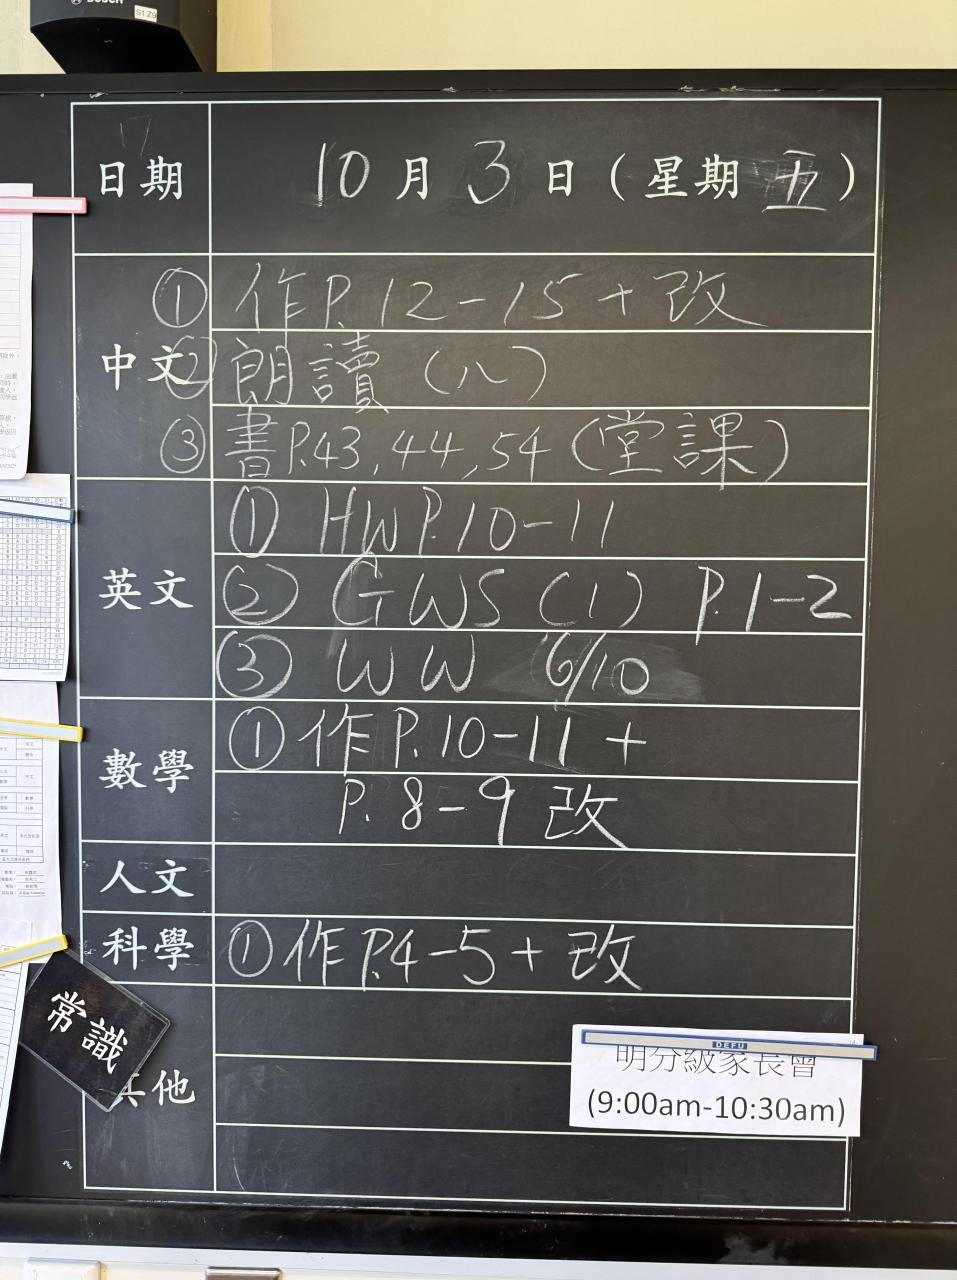 S1 Z9
日期 10月3日(星期五)
中文
① 作P.12-15 + 改
② 朗讀 (八)
③ 書P.43,44,54 (堂課)
英文
① HW P.10-11
② GWS (1) P.1-2
③ WW 6/10
數學
① 作P.10-11 +
P.8-9 改
人文
科學
① 作P.4-5 + 改
常識
其他
DEFU
明分級家長會
(9:00am-10:30am)